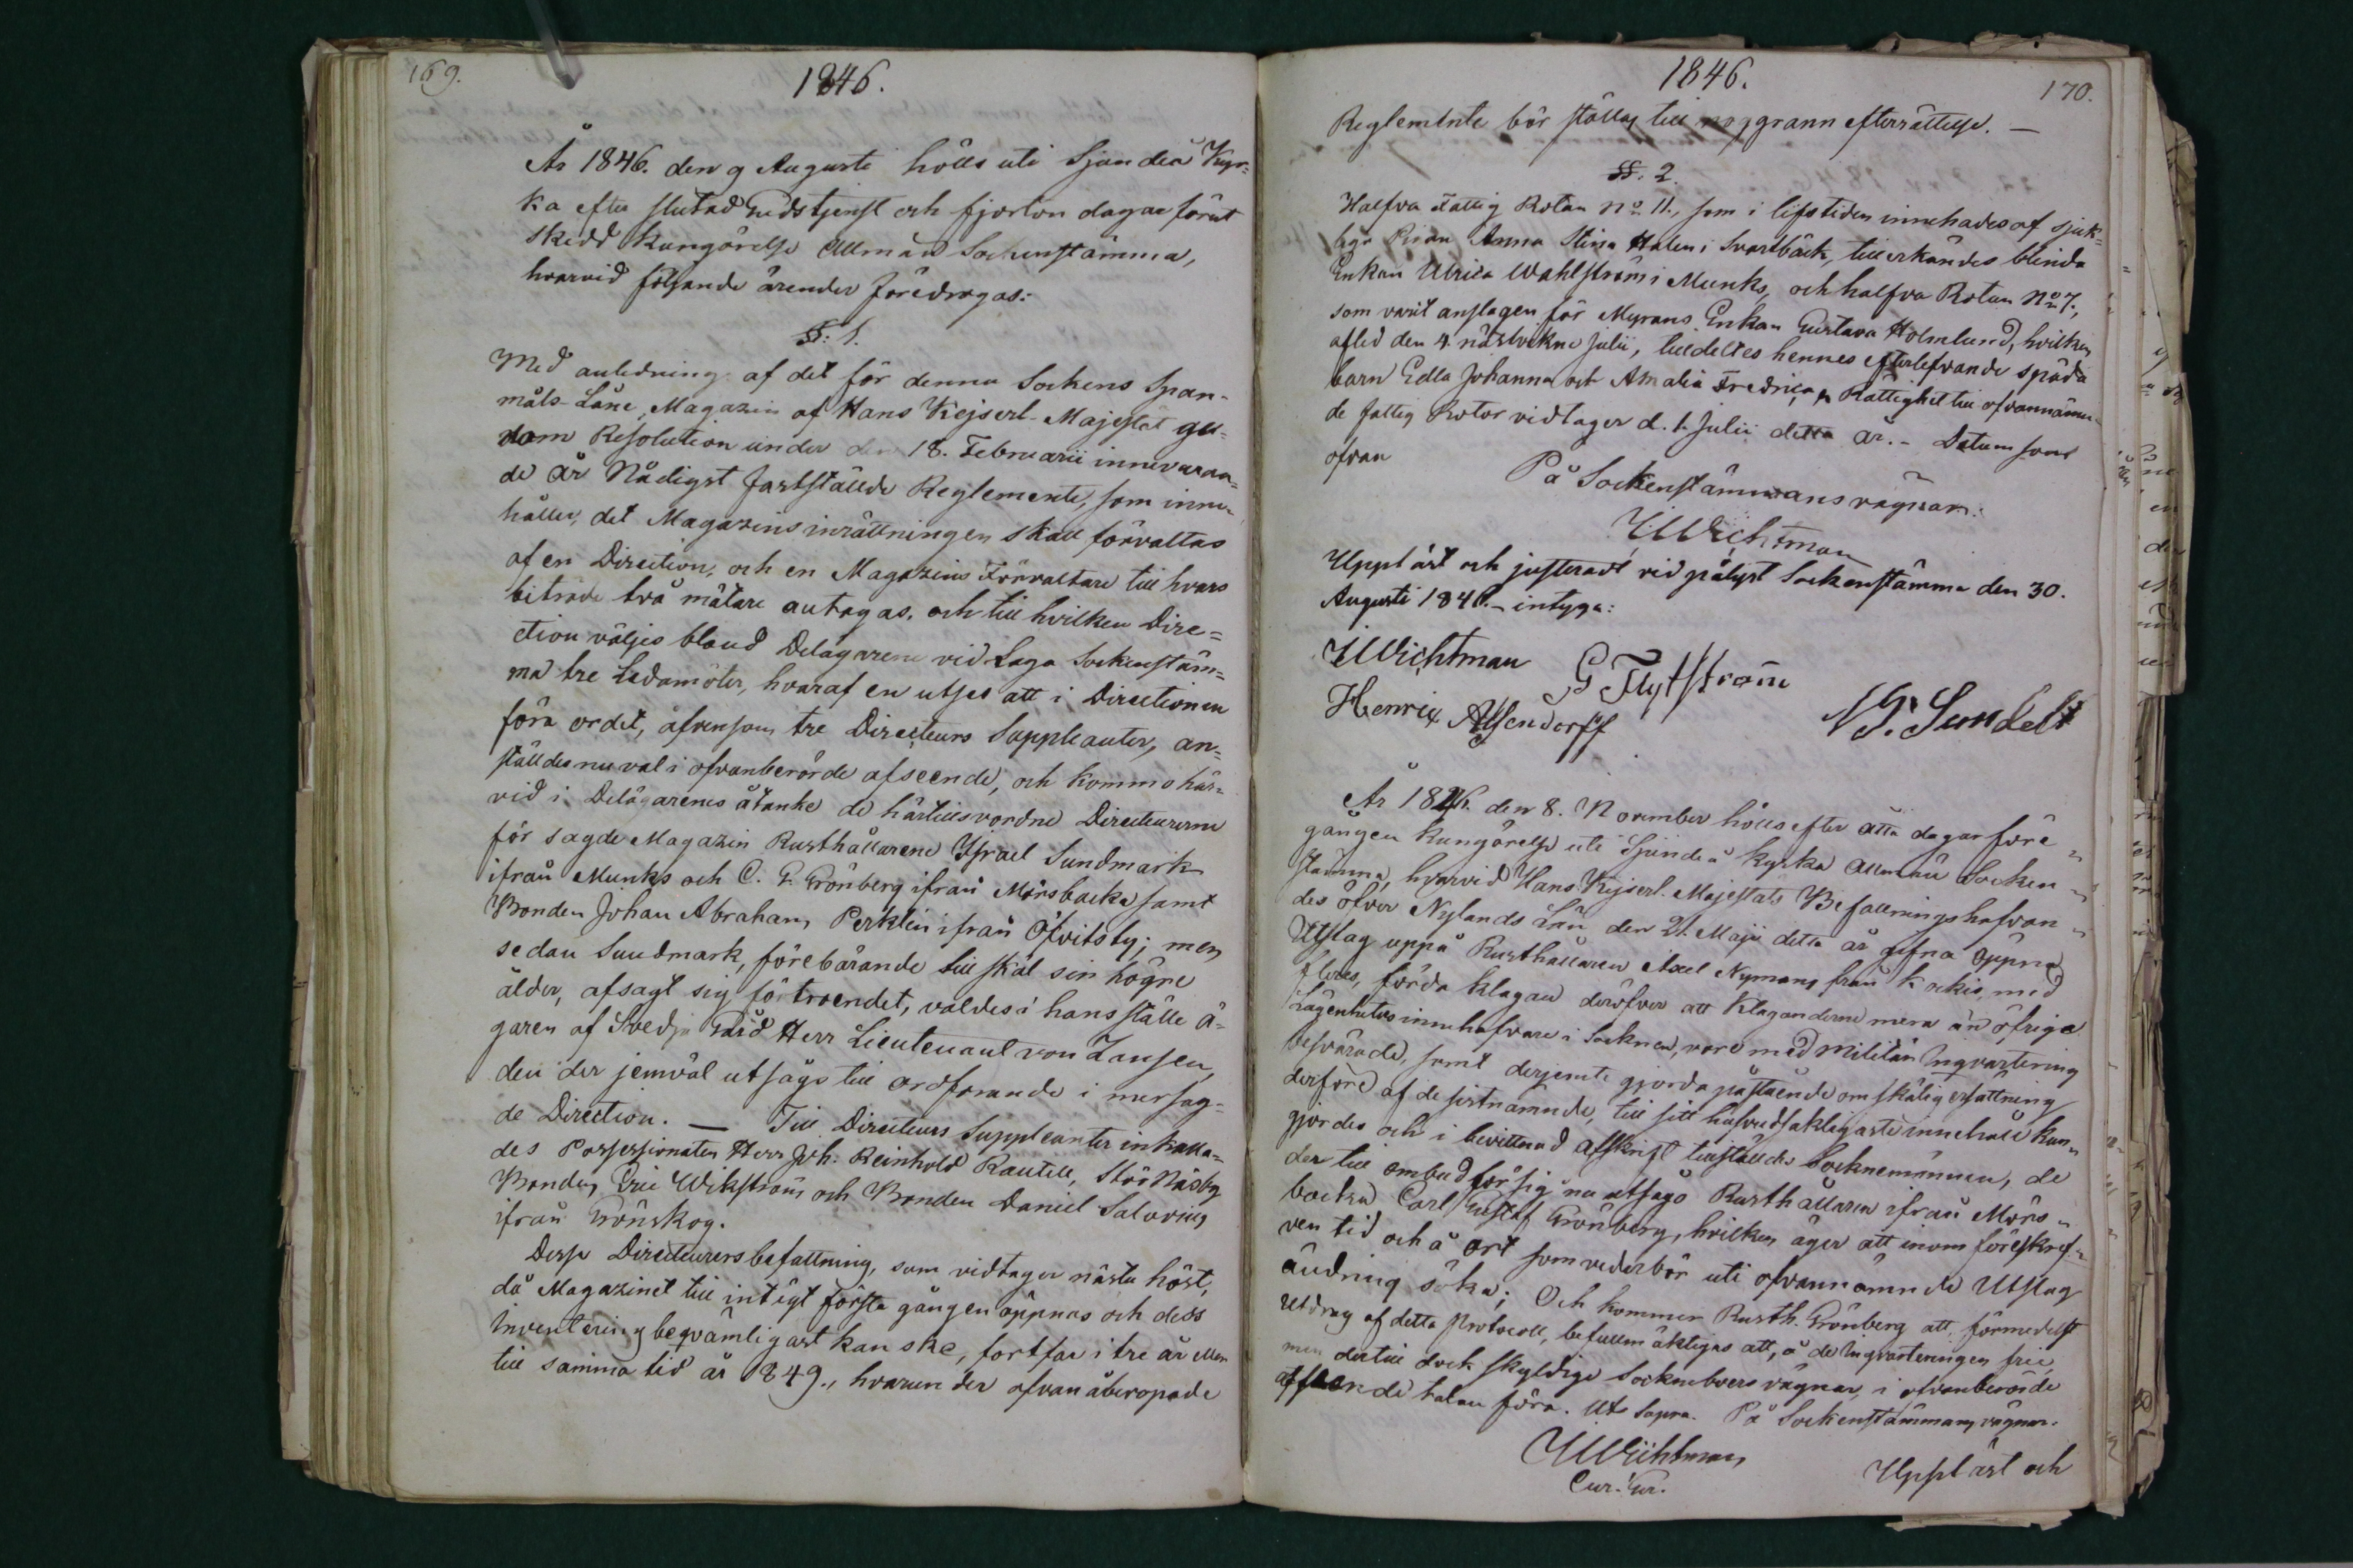 169.
1846.
År 1846. den 9 Augusti hölls uti Sjundeå Kyr=
ka efter slutad Gudstjenst och fjorton dagar förut
skedd kungörelse Allmän Sockenstämma,
hvarvid följande ärender föredrogos:
§. 1.
Med anledning af det för denna Sockens Span-
måls-Låne Magazin af Hans Kejserl. Majestät ge-
nom Resolution under den 18. Februarii innevaran=
de år Nådigst fastställde Reglemente, som inne-
håller, det Magazins inrättningen skall förvaltas
af en Direction, och en Magazins Förvaltare till hvars
biträde två mätare antagas, och till hvilken Dire=
ction väljes bland Delägarene vid Laga Sockenstäm=
ma tre Ledamöter, hvaraf en utses att i Directionen
föra ordet, äfvensom tre Directeurs Suppleanter, an=
ställdes nu val i ofvanberörde afseende, och kommo här=
vid i Delägarenes åtanke de härtillsvordne Directeurerne
för sagde Magazin Rusthållarene Israel Sundmark
ifrån Munks och C. G. Grönberg ifrån Mörsbacka samt
Bonden Johan Abrahams Perklin ifrån Öfvitsby; men
sedan Sundmark, förebärande till skäl sin högre
ålder, afsagt sig förtroendet, valdes i hans ställe ä-
garen af Svedja Gård Herr Lieutenant von Zansen,
den der jemväl utsågs till ordförande i mersag=
de Direction. — Till Directeurs Suppleanter inkalla=
des Possessionaten Herr Joh. Reinhold Rautell, Stör Näsby
Bonden Eric Wikström och Bonden Daniel Salovius
ifrån Grönskog.
Desse Directeurers befattning, som vidtager nästa höst,
då Magazinet till intägt första gången öppnas och dess
Inventering beqvämligast kan ske, fortfar i tre år eller
till samma tid år 1849., hvarunder ofvan åberopade
1846.
170.
Reglemente bör ställas till noggrann efterrättelse. —
§. 2.
Halfva Fattig Rotan No 11., som i lifstiden innehades af sjuk=
liga Pigan Anna Stina Halen i Svartbäck, tillerkändes blinda
Enkan Ulrica Wahlström i Munks, och halfva Rotan No 7.,
som varit anslagen för Myrans Enkan Gustava Holmlund, hvilken
afled den 4. nästvekne Julii, tilldeltes hennes efterlefvande späda
barn Edla Johanna och Amalia Fredrica. Rättighet till ofvannämn-
de Fattig Rotor vidtager d. 1. Julii detta år. - Datum som
ofvan
På Sockenstämmans vägnar:
Wichtman
Uppläst och justeradt vid pålyst Sockenstämma den 30.
Augusti 1846. - intyga:
Wichtman G Flytström
Henric Alfendorff
År 1846. den 8. November hölls efter åtta dagar före=
gången kungörelse uti Sjundeå kyrka Allmän Socken=
stämma, hvarvid Hans Kejserl. Majestäts Befallningshafvan=
des öfver Nylands Län den 21. Maji detta år gifna Öppna
Utslag uppå Rusthållaren Axel Nymans från Kockis, med
fleres, förda klagan deröfver att Klaganderne mera än öfriga
Lägenhets innehafvare i Socknen, vore med militär Inqvartering
besvärade, samt derjemte gjorda påstående om skälig ersättning
derföre af de sistnämnde, till sitt hufvudsakligaste innehåll kun=
gjordes och i bevittnad afskrift tillställdes Socknemännen, de
der till ombud för sig nu utsågo Rusthållaren ifrån Mörs=
backa Carl Gustaf Grönberg, hvilken äger att inom föreskref=
ven tid och å ort som vederbör uti ofvannämnde Utslag
ändring söka; Och kommer Rusth. Grönberg att förmedelst
Utdrag af detta Protocoll, befullmäktigas att, å de Inqvarteringen frie,
men dertill dock skyldige Sockneboers vägnar, i ofvanberörde
afseende talan föra. Ut Supra. På Sockenstämmans vägnar.
Wichtman
Uppläst och